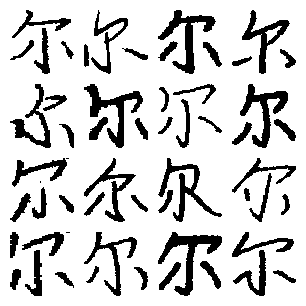 尔尔尔尔
尔尔尔尔
尔尔尔尔
尔尔尔尔